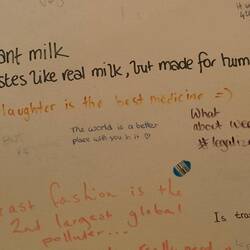 ant milk
stes like real milk, but made for hum
laughter is the best medicine =)
The world is a better
place with you in it
What
about wee
#legaliz
ast fashion is the
2nd largest global
polluter...
Is tra
really need